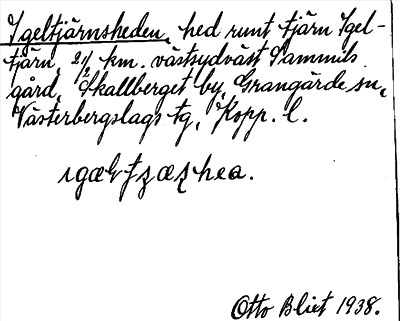 Igeltjärnsheden, hed runt tjärn Igel-
tjärn, 2½ km. västsydväst Sammils
gård, Skallberget by, Grangärde sn,
Västerbergslags tg, Kopp. l.
Otto Blixt 1938.